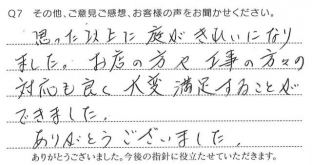 Q7 その他、ご意見ご感想、お客様の声をお聞かせください。
思った以上に庭がきれいになり
ました。お店の方や工事の方々の
対応も良く大変満足することが
できました。
ありがとうございました。
ありがとうございました。今後の指針に役立たせていただきます。